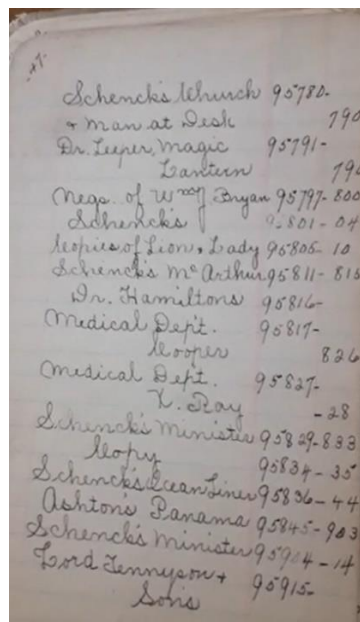 47.
Schenck's Church 95780-
+ Man at Desk 790
Dr. Leeper, Magic 95791-
Lantern 796
Negs. of Wm J. Bryan 95797-800
Schenck's 95801-04
Copies of Lion + Lady 95805-10
Schenck's McArthur 95811-815
Dr. Hamiltons 95816-
Medical Dep't. 95817-
Cooper 826
Medical Dept. 95827-
X. Ray -28
Schenck's Minister 95829-833
Copy 95834-35
Schenck's Ocean Liner 95836-44
Ashton's Panama 95845-903
Schenck's Minister 95904-14
Lord Tennyson + 95915-
Sons